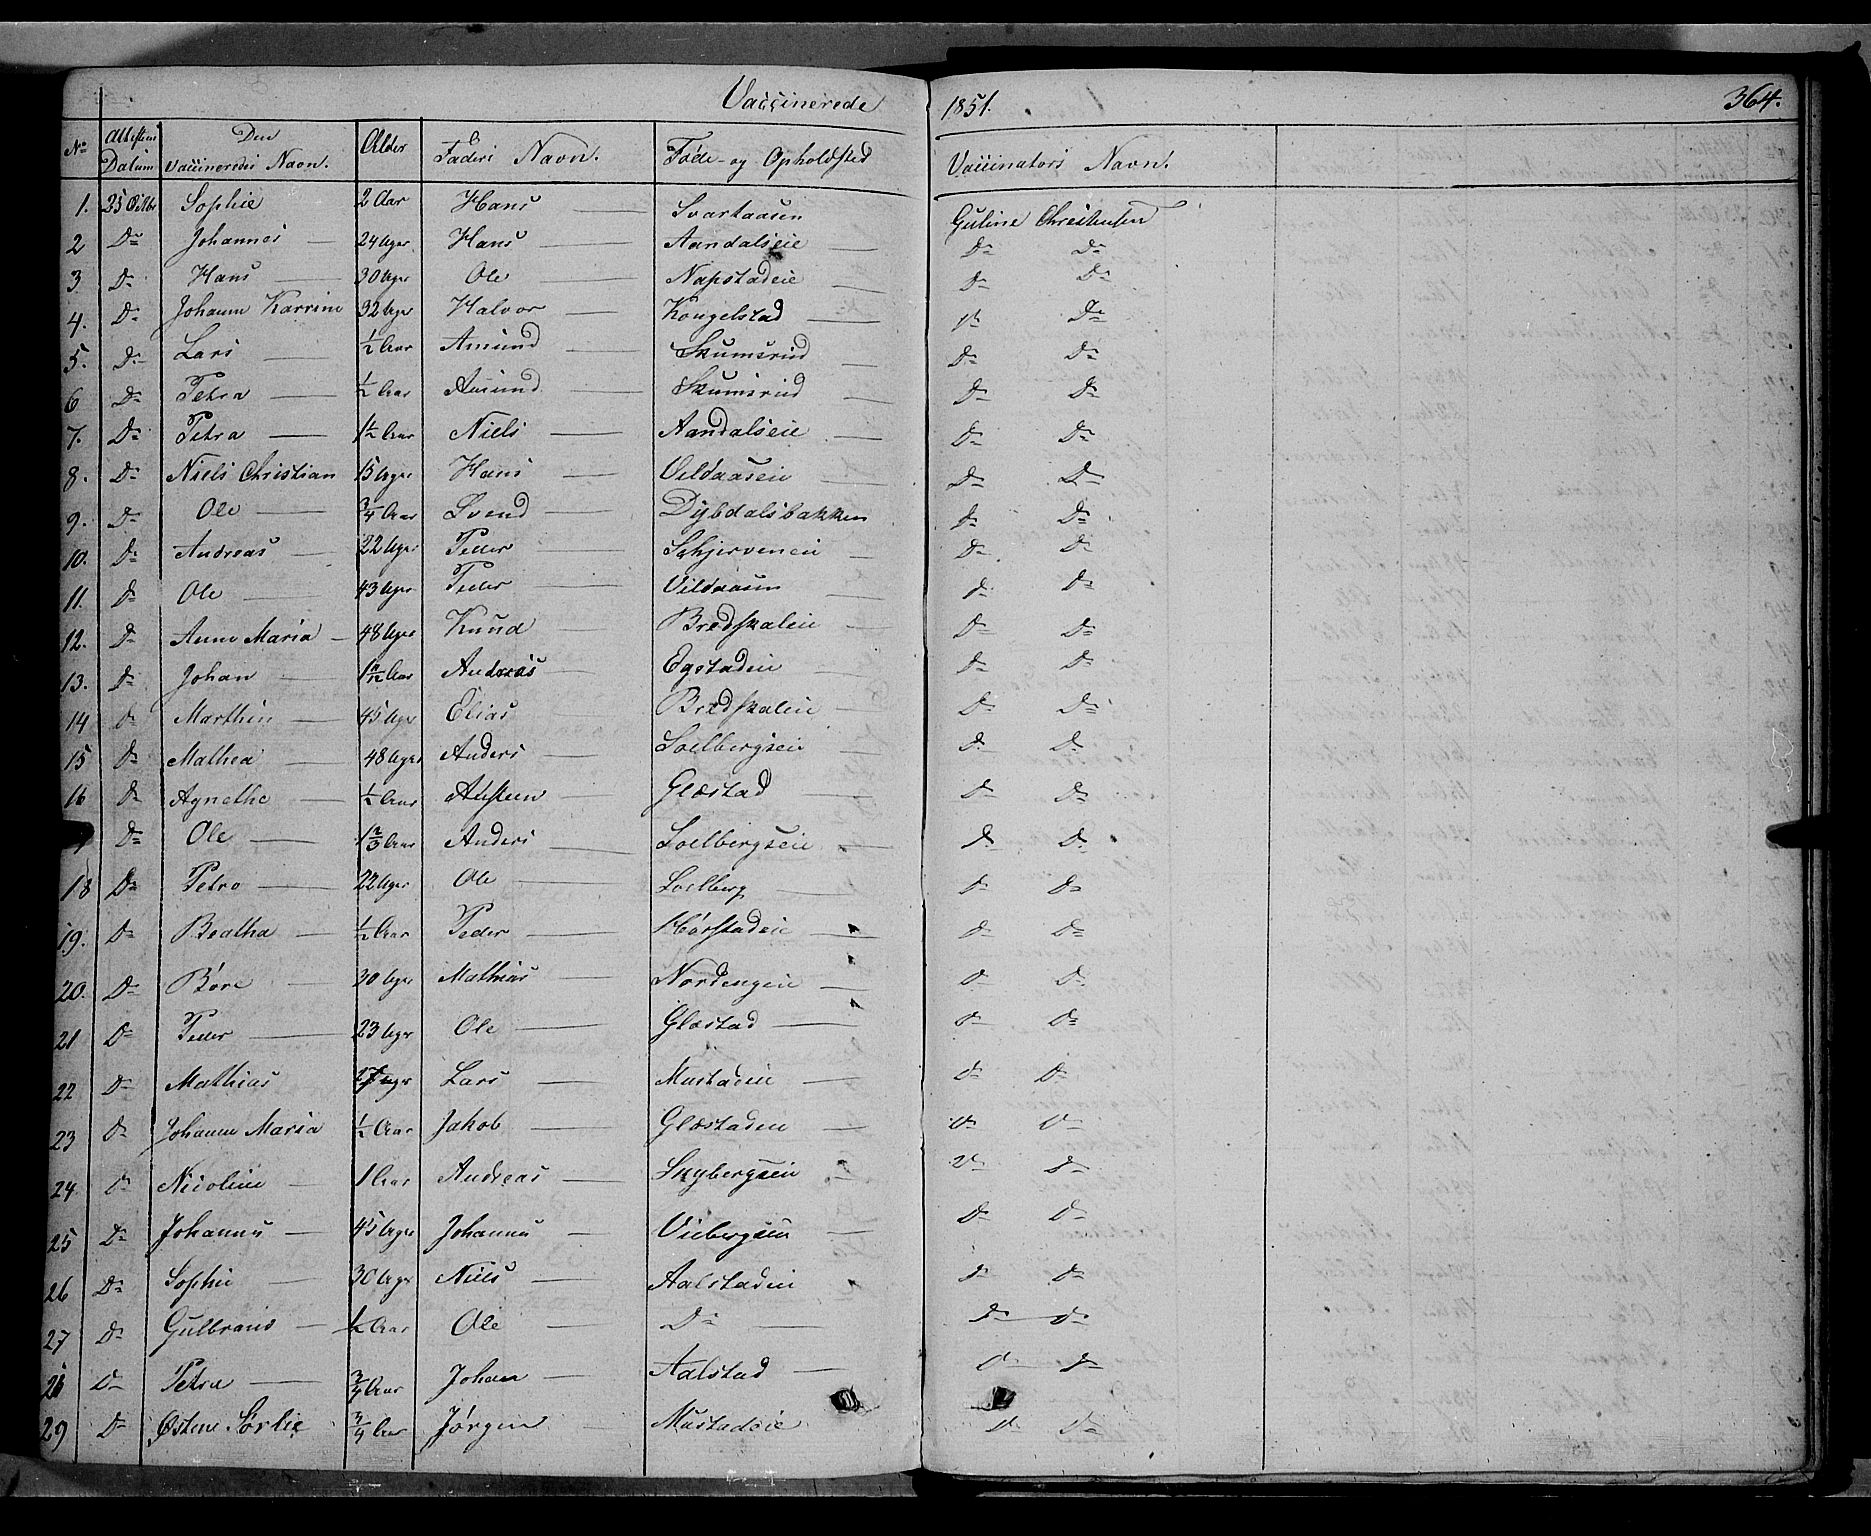 Vaccinerede 1851. 364.
No Attestens Datum Den Vaccineredes Navn. Alder Faders Navn. Føde- og Opholdsted Vaccinators Navn.
1. 25 Octbr Sophie 2 Aar Hans Svartaasen Guline Christensen
2 Do Johannes 24 Uger Hans Aandalseie Do Do
3 Do Hans 30 Uger Ole Napstadeie Do Do
4. Do Johanne Karrine 32 Uger Halvor Kongelstad Do Do
5. Do Lars 1/2 Aar Amund Skumsrud Do Do
6 Do Petra 1/2 Aar Amund Skumsrud Do Do
7. Do Petra 1 1/2 Aar Niels Aandalseie Do Do
8. Do Niels Christian 15 Uger Hans Vildaaseie Do Do
9. Do Ole 3/4 Aar Svend Dybdalsbakken Do Do
10. Do Andreas 22 Uger Peder Schjerveneie Do Do
11. Do Ole 43 Uger Peder Vildaasen Do Do
12. Do Anne Maria 48 Uger Knud Bredskaleie Do Do
13. Do Johan Andreas Egstadeie Do Do
14 Do Marthin 45 Uger Elias Bredskaleie Do Do
15 Do Mathea 48 Uger Anders Soelbergseie Do Do
16 Do Agnethe 1/2 Aar Austeen Glæstad Do Do
Do Ole 1 2/3 Aar Anders Soelbergseie Do Do
18 Do Petro 22 Uger Ole Soelberg Do Do
19. Do Beatha 1/2 Aar Peder Hørstadeie Do Do
20. Do Børe 30 Uger Mathias Nordengeie Do Do
21 Do Peder 23 Uger Ole Glæstad Do Do
22 Do Mathias 27 Uger Lars Mustadeie Do Do
23 Do Johanne Maria 1/2 Aar Jakob Glæstadeie Do Do
24 Do Nicoline 1 Aar Andreas Skybergseie Do Do
25 Do Johannes 45 Uger Johannes Viebergseie Do Do
26 Do Sophie 30 Uger Niels Aalstadeie Do Do
27 Do Gulbrand 1/2 Aar Ole Do Do Do
28 Do Petra 3/4 Aar Johan Aalstad Do Do
29 Do Østene Sørlie 3/4 Aar Jørgen Mustadeie Do Do